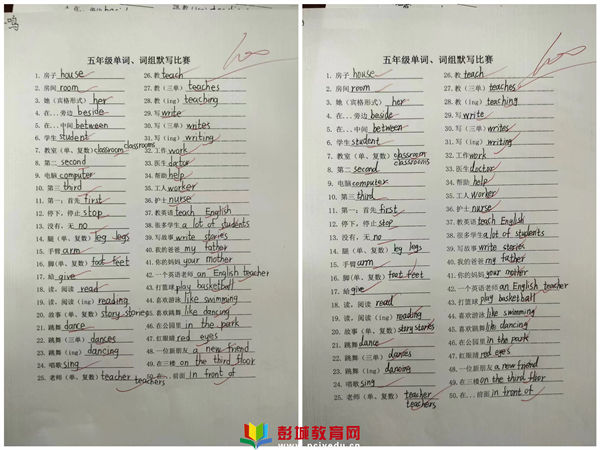 五年级单词、词组默写比赛
100
1. 房子 house
2. 房间 room
3. 她（宾格形式）her
4. 在...旁边 beside
5. 在...中间 between
6. 学生 student
7. 教室（单、复数）classroom classrooms
8. 第二 second
9. 电脑 computer
10. 第三 third
11. 第一；首先 first
12. 停下，停止 stop
13. 没有，无 no
14. 腿（单、复数）leg legs
15. 手臂 arm
16. 脚（单、复数）foot feet
17. 给 give
18. 读，阅读 read
19. 读，阅读（ing）reading
20. 故事（单、复数）story stories
21. 跳舞 dance
22. 跳舞（三单）dances
23. 跳舞（ing）dancing
24. 唱歌 sing
25. 老师（单、复数）teacher teachers
26. 教 teach
27. 教（三单）teaches
28. 教（ing）teaching
29. 写 write
30. 写（三单）writes
31. 写（ing）writing
32. 工作 work
33. 医生 doctor
34. 帮助 help
35. 工人 worker
36. 护士 nurse
37. 教英语 teach English
38. 很多学生 a lot of students
39. 写故事 write stories
40. 我的爸爸 my father
41. 你的妈妈 your mother
42. 一个英语老师 an English teacher
43. 打篮球 play basketball
44. 喜欢游泳 like swimming
45. 喜欢跳舞 like dancing
46. 在公园里 in the park
47. 红眼睛 red eyes
48. 一位新朋友 a new friend
49. 在三楼 on the third floor
50. 在...前面 in front of
五年级单词、词组默写比赛
100
1. 房子 house
2. 房间 room
3. 她（宾格形式）her
4. 在...旁边 beside
5. 在...中间 between
6. 学生 student
7. 教室（单、复数）classroom classrooms
8. 第二 second
9. 电脑 computer
10. 第三 third
11. 第一；首先 first
12. 停下，停止 stop
13. 没有，无 no
14. 腿（单、复数）leg legs
15. 手臂 arm
16. 脚（单、复数）foot feet
17. 给 give
18. 读，阅读 read
19. 读，阅读（ing）reading
20. 故事（单、复数）story stories
21. 跳舞 dance
22. 跳舞（三单）dances
23. 跳舞（ing）dancing
24. 唱歌 sing
25. 老师（单、复数）teacher teachers
26. 教 teach
27. 教（三单）teaches
28. 教（ing）teaching
29. 写 write
30. 写（三单）writes
31. 写（ing）writing
32. 工作 work
33. 医生 doctor
34. 帮助 help
35. 工人 worker
36. 护士 nurse
37. 教英语 teach English
38. 很多学生 a lot of students
39. 写故事 write stories
40. 我的爸爸 my father
41. 你的妈妈 your mother
42. 一个英语老师 an English teacher
43. 打篮球 play basketball
44. 喜欢游泳 like swimming
45. 喜欢跳舞 like dancing
46. 在公园里 in the park
47. 红眼睛 red eyes
48. 一位新朋友 a new friend
49. 在三楼 on the third floor
50. 在...前面 in front of
彭城教育网